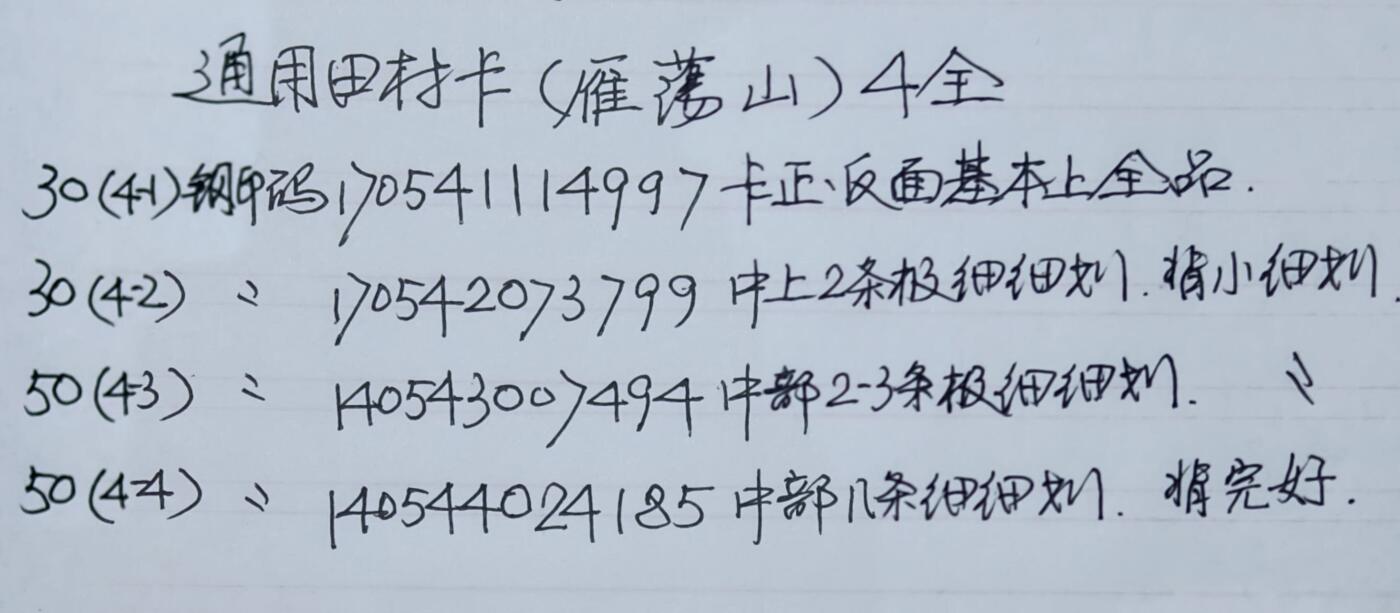 通用田村卡(雁荡山)4全
30(4-1)钢印码170541114997卡正.反面基本上全品.
30(4-2) 〃 170542073799中上2条极细细划.背小细划.
50(4-3) 〃 140543007494中部2-3条极细细划. 〃
50(4-4) 〃 140544024185中部几条细细划. 背完好.